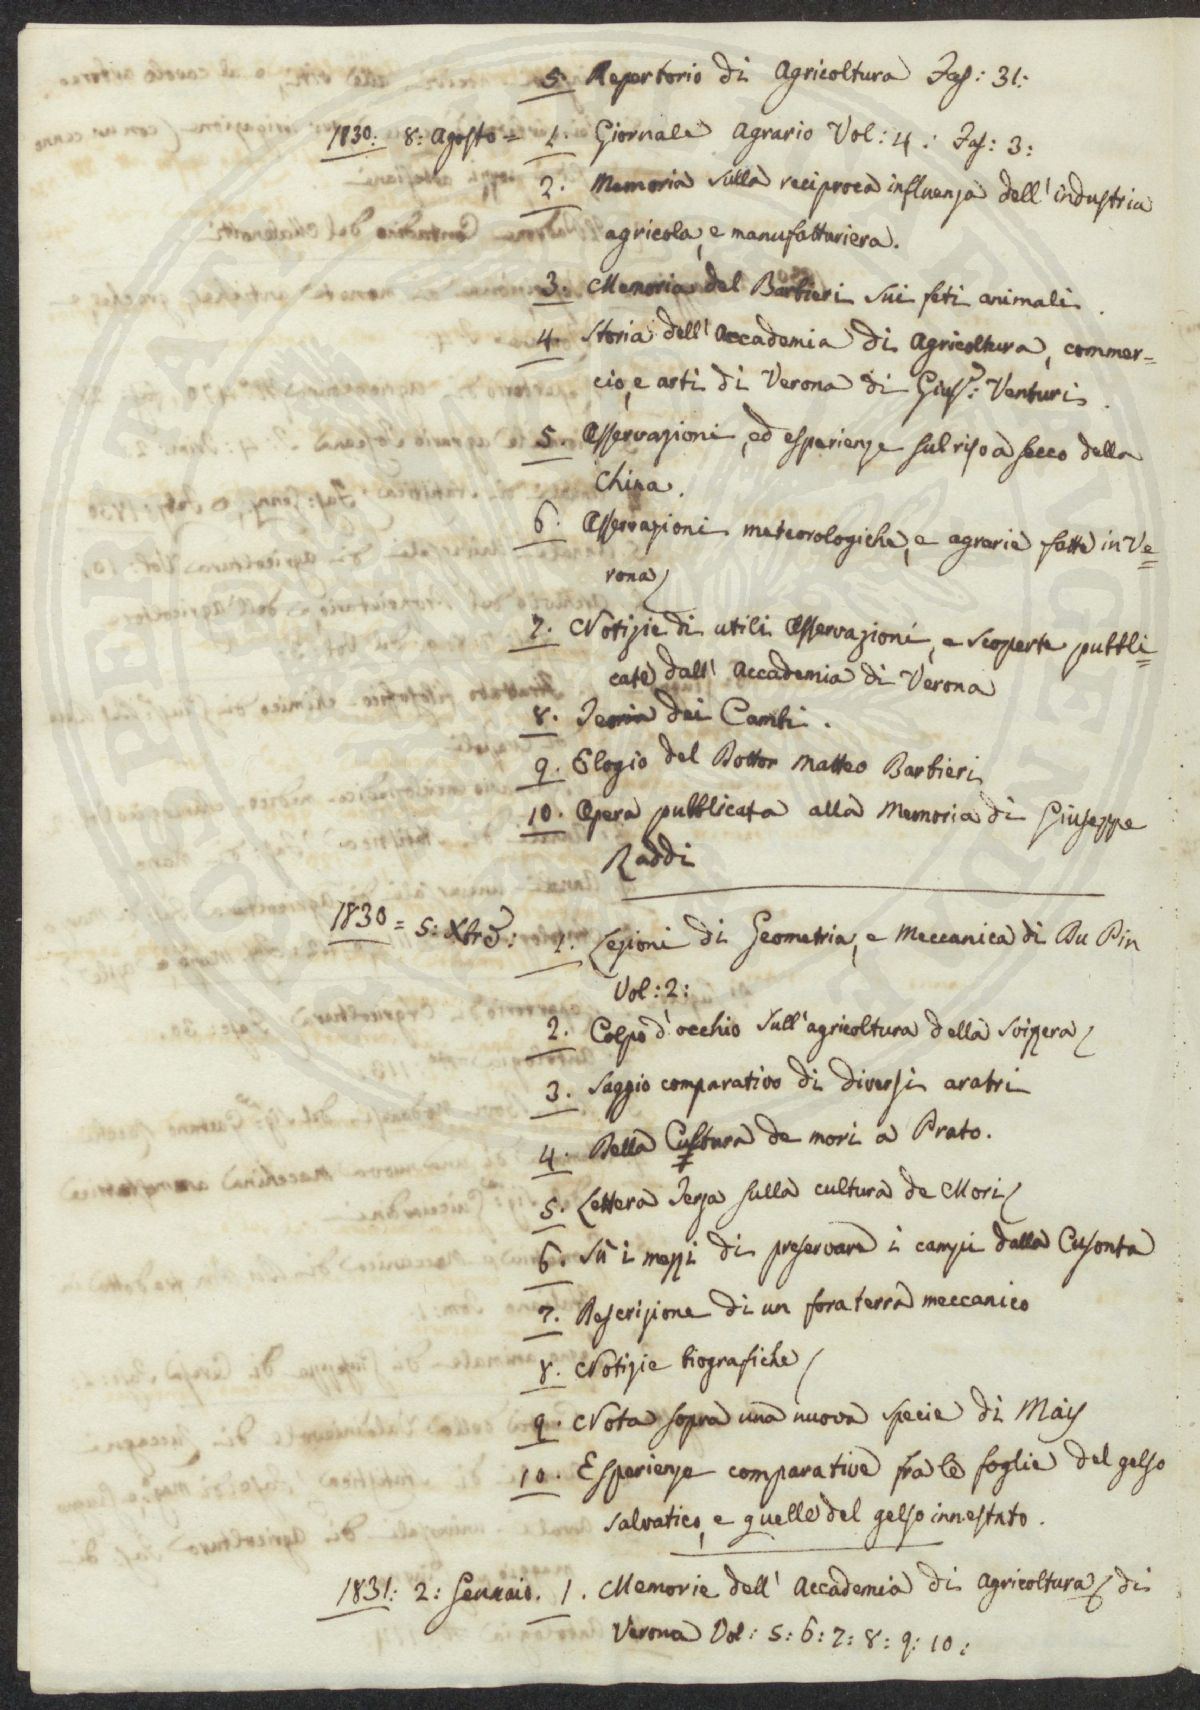 5. Repertorio di Agricoltura Fas: 31:
1830: 8: Agosto = 1. Giornale Agrario Vol: 4: Fas: 3:
2. Memoria sulla reciproca influenza dell'industria
agricola, e manufatturiera.
3. Memoria del Barbieri sui feti animali.
4. Storia dell'Accademia di Agricoltura, commer=
cio, e arti di Verona di Gius.e: Venturi.
5. Osservazioni, ed esperienze sul riso a secco della
China.
6. Osservazioni meteorologiche, e agrarie fatte in Ve=
rona
7. Notizie di utili Osservazioni, e scoperte pubbli=
cate dall'Accademia di Verona
8. Teoria dei Cambi.
9. Elogio del Dottor Matteo Barbieri
10. Opera pubblicata alla Memoria di Giuseppe
Raddi
1830 = 5: Xbre: 1. Lezioni di Geometria, e Meccanica di Du Pin
Vol: 2:
2. Colpo d'occhio sull'agricoltura della Svizzera
3. Saggio comparativo di diversi aratri
4. Della Cultura de mori a Prato.
5. Lettera Terza sulla cultura de Mori
6. Sù i mezzi di preservare i campi dalla Cusonta
7. Descrizione di un foraterra meccanico
8. Notizie biografiche
9. Nota sopra una nuova specie di Mais
10. Esperienze comparative fra le foglie del gelso
salvatico, e quelle del gelso innestato.
1831: 2: Gennaio. 1. Memorie dell'Accademia di Agricoltura di
Verona Vol: 5: 6: 7: 8: 9: 10: